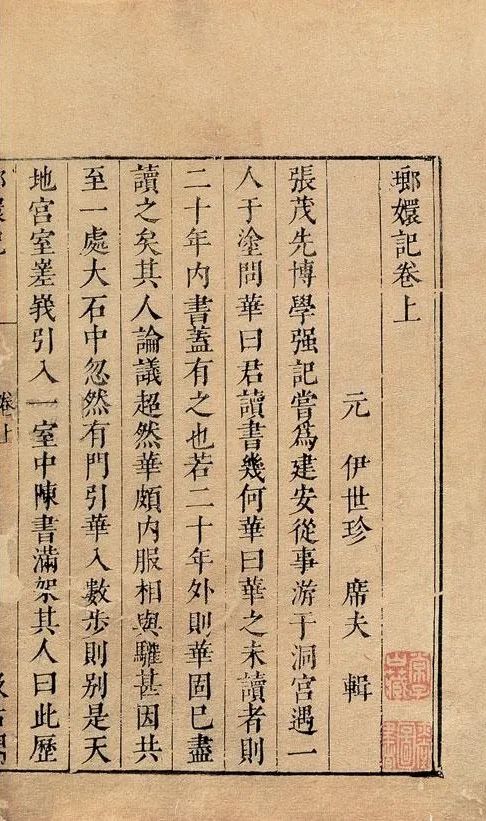 瑯嬛記卷上
元 伊世珍 席夫 輯
張茂先博學强記嘗爲建安從事游于洞宮遇一
人于塗問華曰君讀書幾何華曰華之未讀者則
二十年內書蓋有之也若二十年外則華固已盡
讀之矣其人論議超然華頗內服相與驩甚因共
至一處大石中忽然有門引華入數步則别是天
地宮室嵳峩引入一室中陳書滿架其人曰此歷
卷上